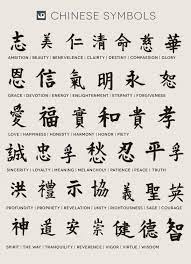 CHINESE SYMBOLS
志 美 仁 清 命 慈 華
AMBITION | BEAUTY | BENEVOLENCE | CLARITY | DESTINY | COMPASSION | GLORY
恩 信 氣 明 永 恕
GRACE | DEVOTION | ENERGY | ENLIGHTENMENT | ETERNITY | FORGIVENESS
愛 福 和 貴 孝
LOVE | HAPPINESS | HONESTY | HARMONY | HONOR | PIETY
誠 忠 愁 忍 平 孚
SINCERITY | LOYALTY | MEANING | MELANCHOLY | PATIENCE | PEACE | TRUST
洪 禮 示 協 義 聖 英
PROFUNDITY | PROPRIETY | REVELATION | UNITY | RIGHTEOUSNESS | SAGE | COURAGE
神 道 安 崇 健 德 智
SPIRIT | THE WAY | TRANQUILITY | REVERENCE | VIGOR | VIRTUE | WISDOM